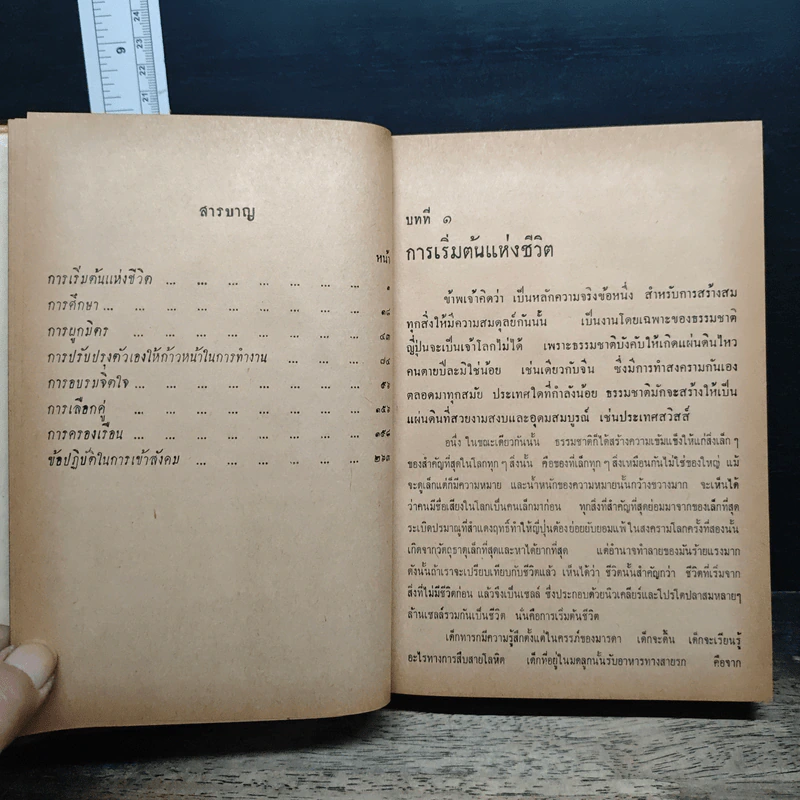 24
9
23
22
21
สารบาญ
หน้า
การเริ่มต้นแห่งชีวิต ... ... ... ... ... ... ... ๑
การศึกษา ... ... ... ... ... ... ... ... ๑๘
การผูกมิตร ... ... ... ... ... ... ... ๔๓
การปรับปรุงตัวเองให้ก้าวหน้าในการทำงาน ... ... ... ... ๘๔
การอบรมจิตใจ ... ... ... ... ... ... ...
การเลือกคู่ ... ... ... ... ... ... ...
การครองเรือน ... ... ... ... ... ... ...
ข้อปฏิบัติในการเข้าสังคม ... ... ... ... ... ... ๒๖๓
บทที่ ๑
การเริ่มต้นแห่งชีวิต
ข้าพเจ้าคิดว่า เป็นหลักความจริงข้อหนึ่ง สำหรับการสร้างสม
ทุกสิ่งให้มีความสมดุลย์กันนั้น เป็นงานโดยเฉพาะของธรรมชาติ
ญี่ปุ่นจะเป็นเจ้าโลกไม่ได้ เพราะธรรมชาติบังคับให้เกิดแผ่นดินไหว
คนตายปีละมิใช่น้อย เช่นเดียวกับจีน ซึ่งมีการทำสงครามกันเอง
ตลอดมาทุกสมัย ประเทศใดที่กำลังน้อย ธรรมชาติมักจะสร้างให้เป็น
แผ่นดินที่สวยงามสงบและอุดมสมบูรณ์ เช่นประเทศสวิสส์
อนึ่ง ในขณะเดียวกันนั้น ธรรมชาติก็ได้สร้างความเข้มแข็งให้แก่สิ่งเล็ก ๆ
ของสำคัญที่สุดในโลกทุก ๆ สิ่งนั้น คือของที่เล็กทุก ๆ สิ่งเหมือนกันไม่ใช้ของใหญ่ แม้
จะดูเล็กแต่ก็มีความหมาย และน้ำหนักของความหมายนั้นกว้างขวางมาก จะเห็นได้
ว่าคนมีชื่อเสียงในโลกเป็นคนเล็กมาก่อน ทุกสิ่งที่สำคัญที่สุดย่อมมาจากของเล็กที่สุด
ระเบิดปรมาณูที่สำแดงฤทธิ์ทำให้ญี่ปุ่นต้องย่อยยับยอมแพ้ ในสงครามโลกครั้งที่สองนั้น
เกิดจากวัตถุธาตุเล็กที่สุดและหาได้ยากที่สุด แต่อำนาจทำลายของมันร้ายแรงมาก
ดังนั้นถ้าเราจะเปรียบเทียบกับชีวิตแล้ว เห็นได้ว่า ชีวิตนั้นสำคัญกว่า ชีวิตที่เริ่มจาก
สิ่งที่ไม่มีชีวิตก่อน แล้วจึงเป็นเซลล์ ซึ่งประกอบด้วยนิวเคลียร์และโปรโตปลาสมหลายๆ
ล้านเซลล์รวมกันเป็นชีวิต นั่นคือการเริ่มต้นชีวิต
เด็กทารกมีความรู้สึกตั้งแต่ในครรภ์ของมารดา เด็กจะดิ้น เด็กจะเรียนรู้
อะไรทางการสืบสายโลหิต เด็กที่อยู่ในมดลูกนั้นรับอาหารทางสายรก คือจาก